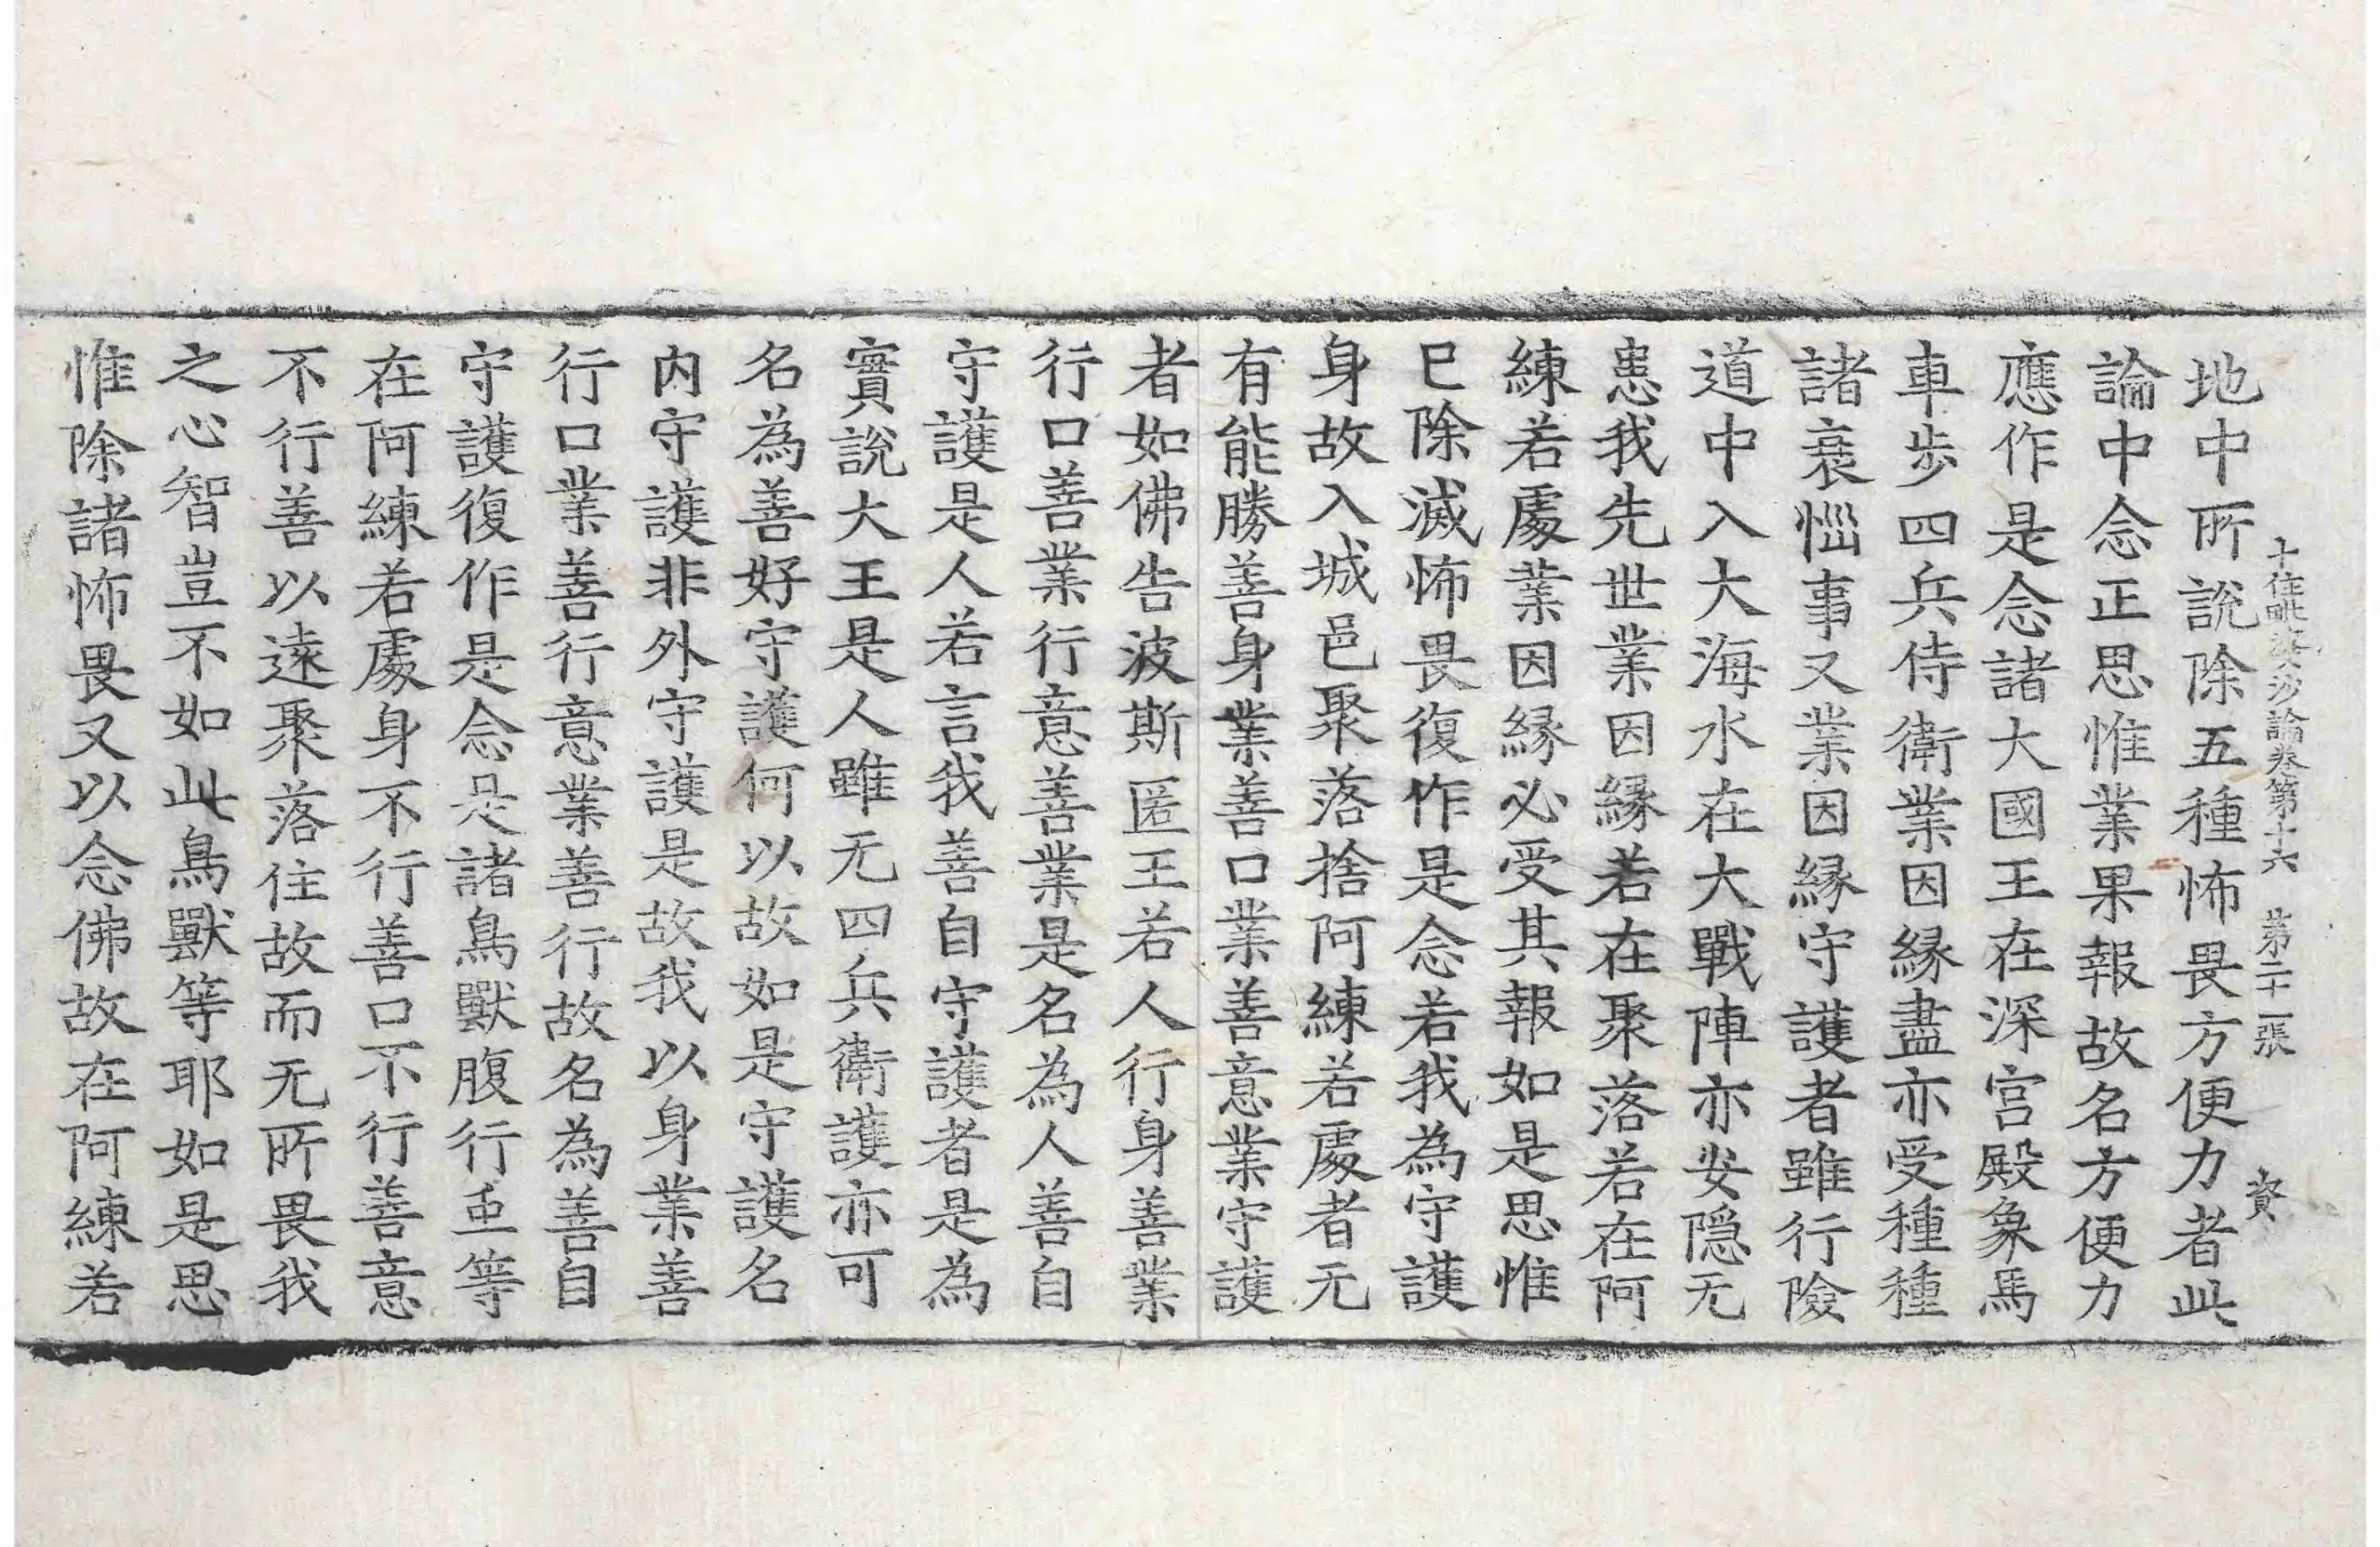 十住毗婆沙論卷第十六 第二十一張 資
地中所說除五種怖畏方便力者此
論中念正思惟業果報故名方便力
應作是念諸大國王在深宮殿象馬
車步四兵侍衛業因緣盡亦受種種
諸衰惱事又業因緣守護者雖行險
道中入大海水在大戰陣亦安隱无
患我先世業因緣若在聚落若在阿
練若處業因緣必受其報如是思惟
已除滅怖畏復作是念若我為守護
身故入城邑聚落捨阿練若處者无
有能勝善身業善口業善意業守護
者如佛告波斯匿王若人行身善業
行口善業行意善業是名為人善自
守護是人若言我善自守護者是為
實說大王是人雖无四兵衛護亦可
名為善好守護何以故如是守護名
內守護非外守護是故我以身業善
行口業善行意業善行故名為善自
守護復作是念是諸鳥獸腹行虫等
在阿練若處身不行善口不行善意
不行善以遠聚落住故而无所畏我
之心智豈不如此鳥獸等耶如是思
惟除諸怖畏又以念佛故在阿練若